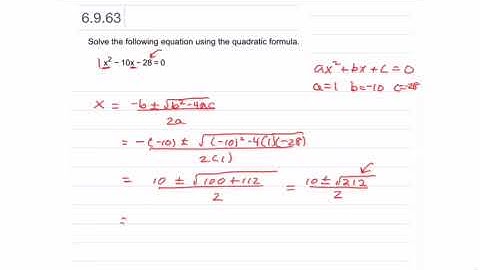 6.9.63
Solve the following equation using the quadratic formula.
1x² − 10x − 28 = 0
ax² + bx + c = 0
a=1 b=-10 c=-28
x = -b ± √b²-4ac / 2a
= -(-10) ± √(-10)²-4(1)(-28) / 2(1)
= 10 ± √100+112 / 2 = 10 ± √212 / 2
=